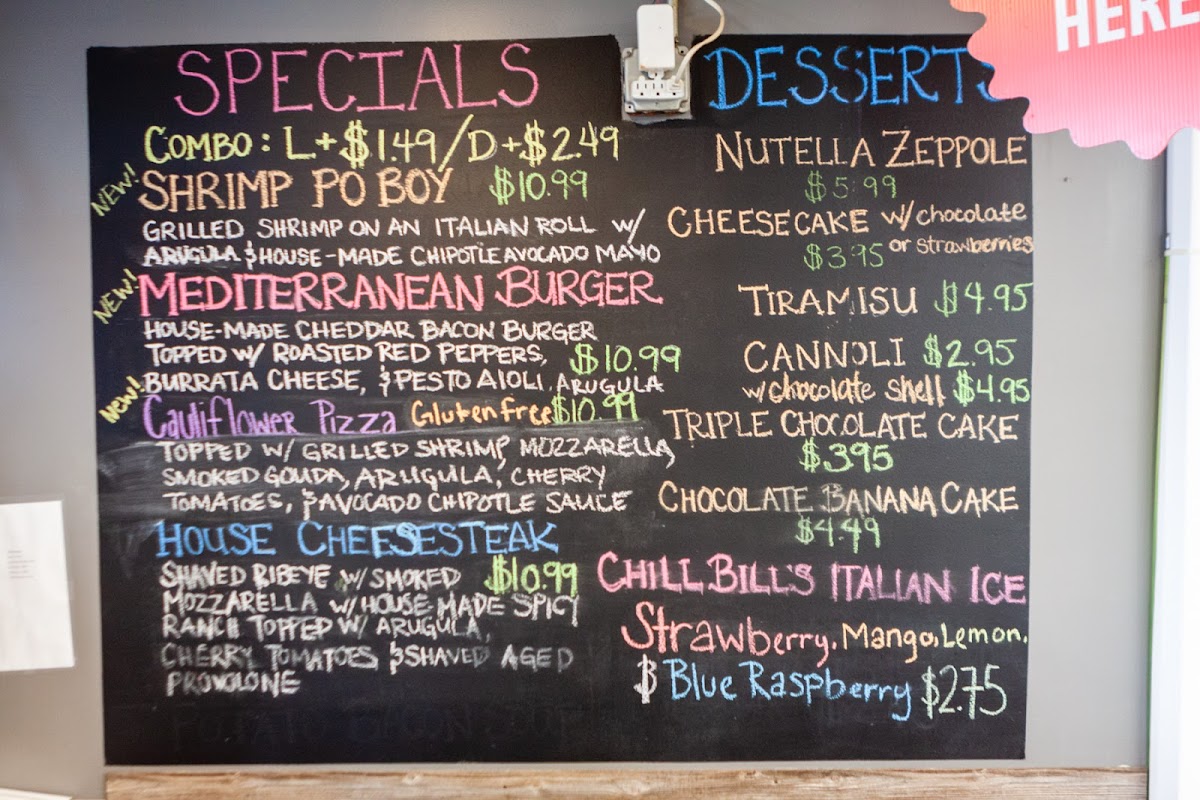 HERE
SPECIALS
COMBO: L+$1.49/D+$2.49
NEW!
SHRIMP PO BOY $10.99
GRILLED SHRIMP ON AN ITALIAN ROLL W/
ARUGULA & HOUSE-MADE CHIPOTLE AVOCADO MAYO
NEW!
MEDITERRANEAN BURGER
HOUSE-MADE CHEDDAR BACON BURGER
TOPPED W/ ROASTED RED PEPPERS, $10.99
BURRATA CHEESE, & PESTO AIOLI, ARUGULA
NEW!
Cauliflower Pizza Gluten free $10.99
TOPPED W/ GRILLED SHRIMP, MOZZARELLA,
SMOKED GOUDA, ARUGULA, CHERRY
TOMATOES, & AVOCADO CHIPOTLE SAUCE
HOUSE CHEESESTEAK
SHAVED RIBEYE W/ SMOKED $10.99
MOZZARELLA W/ HOUSE-MADE SPICY
RANCH TOPPED W/ ARUGULA,
CHERRY TOMATOES & SHAVED AGED
PROVOLONE
POTATO BACON SOUP
DESSERTS
NUTELLA ZEPPOLE
$5.99
CHEESECAKE w/ chocolate
or strawberries
$3.95
TIRAMISU $4.95
CANNOLI $2.95
w/chocolate shell $4.95
TRIPLE CHOCOLATE CAKE
$395
CHOCOLATE BANANA CAKE
$4.49
CHILL BILL'S ITALIAN ICE
Strawberry, Mango, Lemon,
& Blue Raspberry $2.75